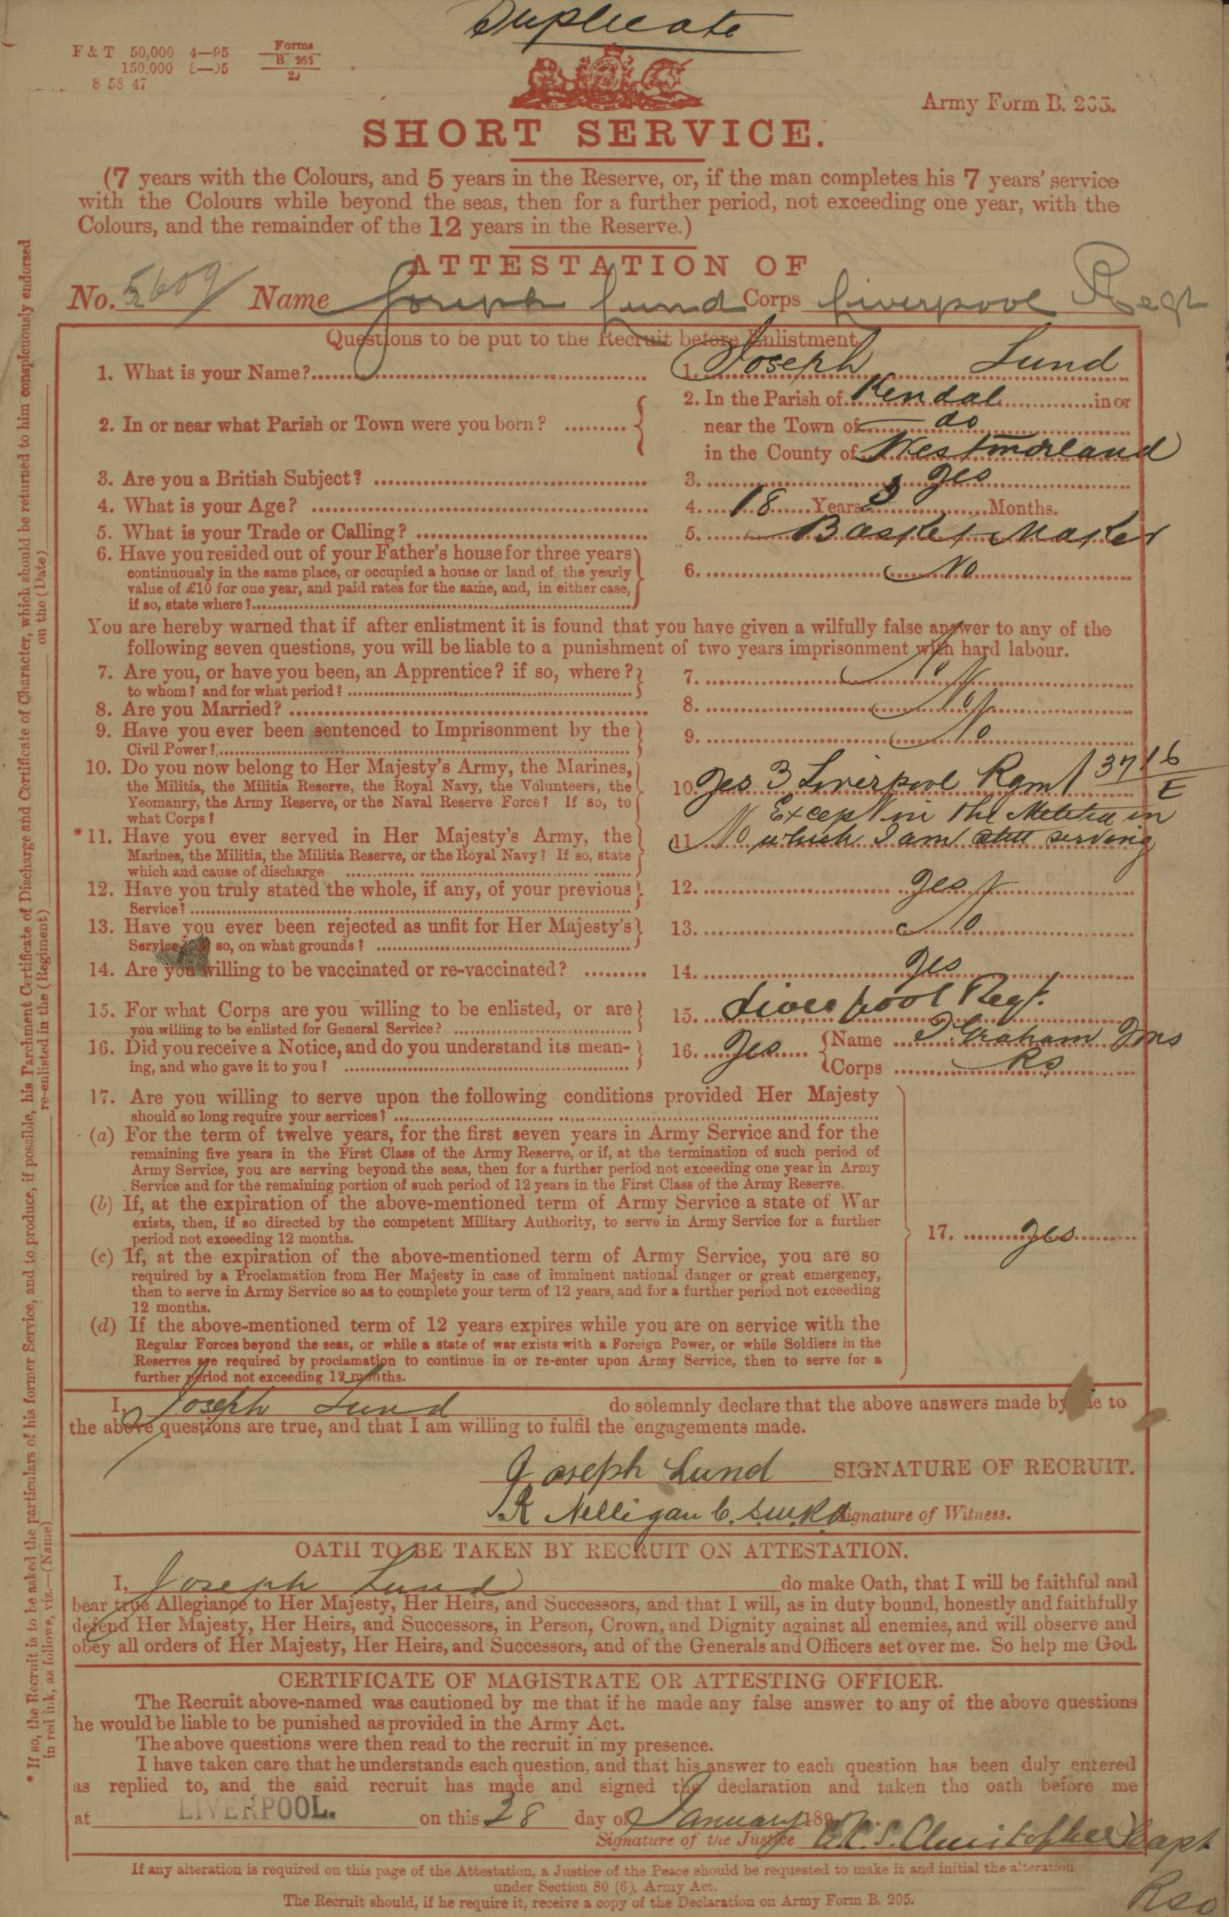 Duplicate
F & T 50,000 4—95 Forms
150,000 8—95 B. 265
8 58 47
Army Form B. 265.
SHORT SERVICE.
(7 years with the Colours, and 5 years in the Reserve, or, if the man completes his 7 years' service
with the Colours while beyond the seas, then for a further period, not exceeding one year, with the
Colours, and the remainder of the 12 years in the Reserve.)
ATTESTATION OF
No. 5609 Name Joseph Lund Corps Liverpool Regt
Questions to be put to the Recruit before Enlistment
1. What is your Name? 1. Joseph Lund
2. In or near what Parish or Town were you born? 2. In the Parish of Kendal in or
near the Town of do
in the County of Westmorland
3. Are you a British Subject? 3. Yes
4. What is your Age? 4. 18 Years 3 Months.
5. What is your Trade or Calling? 5. Basket Maker
6. Have you resided out of your Father's house for three years
continuously in the same place, or occupied a house or land of the yearly 6. No
value of £10 for one year, and paid rates for the same, and, in either case,
if so, state where?
You are hereby warned that if after enlistment it is found that you have given a wilfully false answer to any of the
following seven questions, you will be liable to a punishment of two years imprisonment with hard labour.
7. Are you, or have you been, an Apprentice? if so, where? 7. No
to whom? and for what period?
8. Are you Married? 8. No
9. Have you ever been sentenced to Imprisonment by the 9. No
Civil Power?
10. Do you now belong to Her Majesty's Army, the Marines, 10. Yes 3 Liverpool Rgmt 3716
the Militia, the Militia Reserve, the Royal Navy, the Volunteers, the E
Yeomanry, the Army Reserve, or the Naval Reserve Force? If so, to
what Corps?
Except in the Militia in
* 11. Have you ever served in Her Majesty's Army, the 11. No which I am still serving
Marines, the Militia, the Militia Reserve, or the Royal Navy? If so, state
which and cause of discharge
12. Have you truly stated the whole, if any, of your previous 12. Yes
Service?
13. Have you ever been rejected as unfit for Her Majesty's 13. No
Service so, on what grounds?
14. Are you willing to be vaccinated or re-vaccinated? 14. Yes
15. For what Corps are you willing to be enlisted, or are 15. Liverpool Regt.
you willing to be enlisted for General Service?
16. Did you receive a Notice, and do you understand its mean- 16. Yes Name Graham
ing, and who gave it to you? Corps RS
17. Are you willing to serve upon the following conditions provided Her Majesty
should so long require your services?
(a) For the term of twelve years, for the first seven years in Army Service and for the
remaining five years in the First Class of the Army Reserve, or if, at the termination of such period of
Army Service, you are serving beyond the seas, then for a further period not exceeding one year in Army
Service and for the remaining portion of such period of 12 years in the First Class of the Army Reserve.
(b) If, at the expiration of the above-mentioned term of Army Service a state of War
exists, then, if so directed by the competent Military Authority, to serve in Army Service for a further
period not exceeding 12 months. 17. Yes
(c) If, at the expiration of the above-mentioned term of Army Service, you are so
required by a Proclamation from Her Majesty in case of imminent national danger or great emergency,
then to serve in Army Service so as to complete your term of 12 years, and for a further period not exceeding
12 months.
(d) If the above-mentioned term of 12 years expires while you are on service with the
Regular Forces beyond the seas, or while a state of war exists with a Foreign Power, or while Soldiers in the
Reserves are required by proclamation to continue in or re-enter upon Army Service, then to serve for a
further period not exceeding 12 months.
I, Joseph Lund do solemnly declare that the above answers made by me to
the above questions are true, and that I am willing to fulfil the engagements made.
Joseph Lund SIGNATURE OF RECRUIT.
R Nelligan Signature of Witness.
OATH TO BE TAKEN BY RECRUIT ON ATTESTATION.
I, Joseph Lund do make Oath, that I will be faithful and
bear true Allegiance to Her Majesty, Her Heirs, and Successors, and that I will, as in duty bound, honestly and faithfully
defend Her Majesty, Her Heirs, and Successors, in Person, Crown, and Dignity against all enemies, and will observe and
obey all orders of Her Majesty, Her Heirs, and Successors, and of the Generals and Officers set over me. So help me God.
CERTIFICATE OF MAGISTRATE OR ATTESTING OFFICER.
The Recruit above-named was cautioned by me that if he made any false answer to any of the above questions
he would be liable to be punished as provided in the Army Act.
The above questions were then read to the recruit in my presence.
I have taken care that he understands each question, and that his answer to each question has been duly entered
as replied to, and the said recruit has made and signed the declaration and taken the oath before me
at LIVERPOOL. on this 28 day of January 189
Signature of the Justice Christopher Capt
If any alteration is required on this page of the Attestation, a Justice of the Peace should be requested to make it and initial the alteration
under Section 80 (6), Army Act.
The Recruit should, if he require it, receive a copy of the Declaration on Army Form B. 205.
RSO
* If so, the Recruit is to be asked the particulars of his former Service, and to produce, if possible, his Parchment Certificate of Discharge and Certificate of Character, which should be returned to him conspicuously endorsed
in red ink, as follows, viz.—(Name) re-enlisted in the (Regiment) on the (Date)